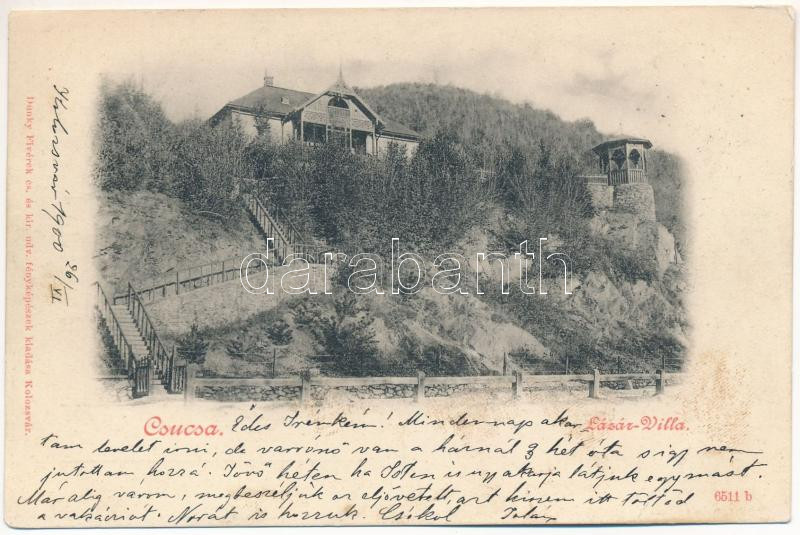 Kolozsvár 1900 26/VI.
Dunky Fivérek cs. és kir. udv. fényképészek kiadása Kolozsvár.
darabanth
Csucsa. Édes Irénkém! Mindennap akar
Lázár-Villa.
tam levelet irni, de varrónő van a háznál 3 hét óta s igy nem
jutottam hozzá. Jövő héten ha Isten is ugy akarja látjuk egymást.
Már alig várom, megbeszéljük az eljövetelt azt hiszem itt töltöd
a vakácziót. Norát is hozzuk. Csókol
6511 b